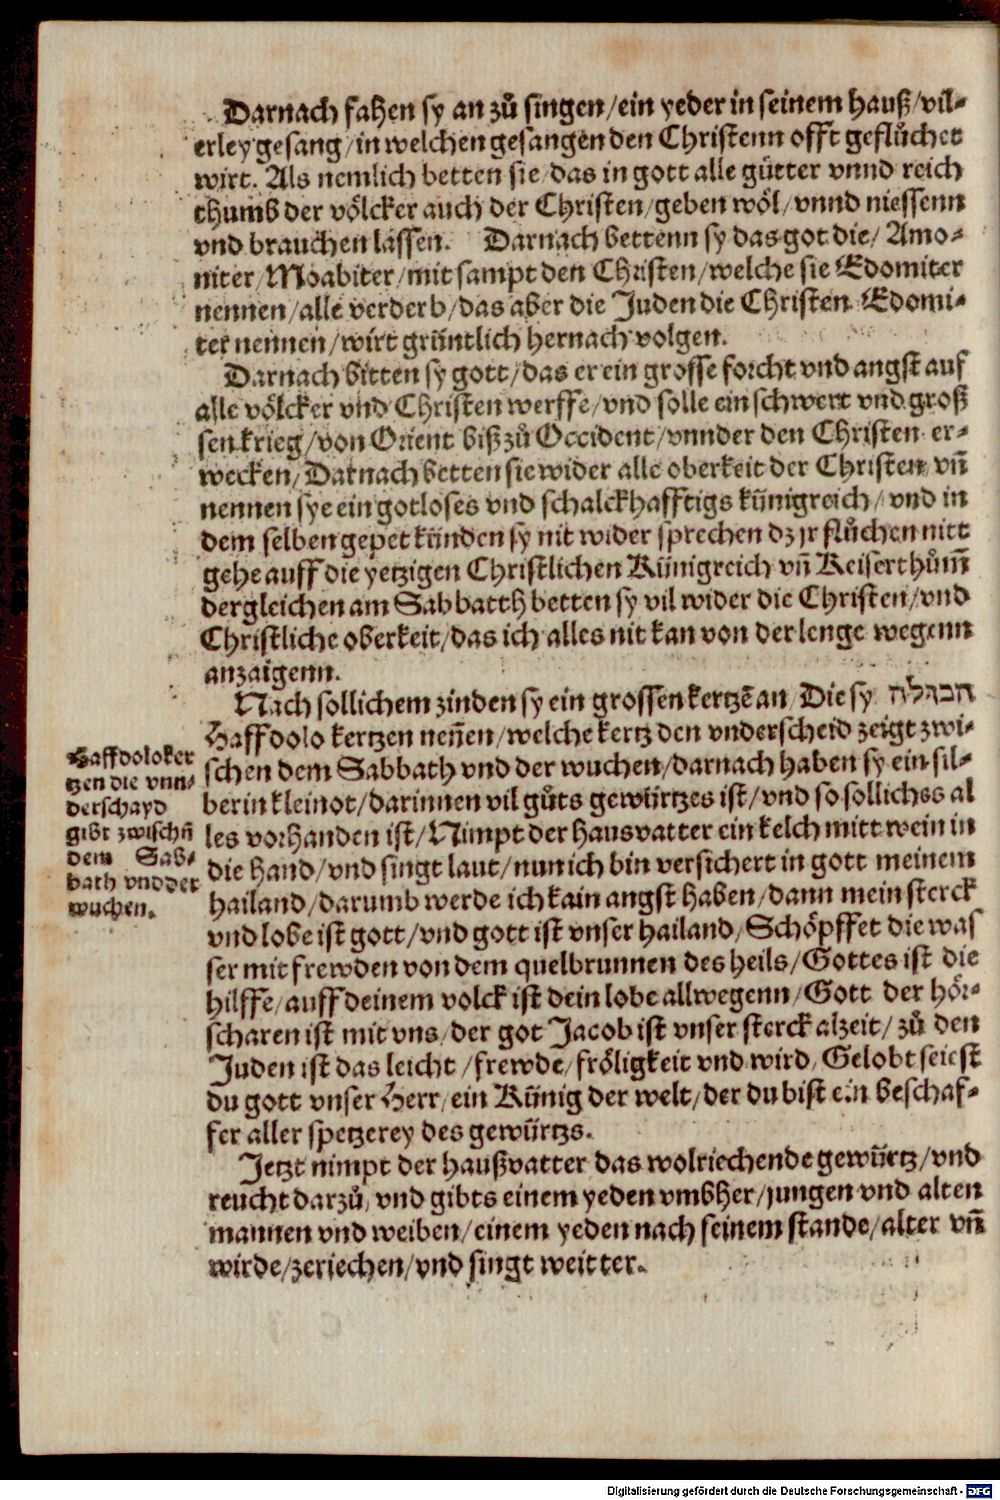 Darnach fahen sy an zů singen/ein yeder in seinem hauß/vil-
erley gesang/in welchen gesangen den Christenn offt geflůchet
wirt. Als nemlich betten sie/das in gott alle gütter vnnd reich
thumb der völcker auch der Christen/geben wöl/vnnd niessenn
vnd brauchen lassen. Darnach bettenn sy das got die/Amo-
niter/Moabiter/mit sampt den Christen/welche sie Edomiter
nennen/alle verderb/das aber die Juden die Christen Edomi-
ter nennen/wirt grüntlich hernach volgen.
Darnach bitten sy gott/das er ein grosse forcht vnd angst auf
alle völcker vnd Christen werffe/vnd solle ein schwert vnd groß
sen krieg/von Orient biß zů Occident/vnnder den Christen er-
wecken/Darnach betten sie wider alle oberkeit der Christen/vñ
nennen sye ein gotloses vnd schalckhafftigs künigreich/vnd in
dem selben gepet künden sy nit wider sprechen dz jr flůchen nitt
gehe auff die yetzigen Christlichen Künigreich vñ Keiserthůmm̃
dergleichen am Sabbatth betten sy vil wider die Christen/vnd
Christliche oberkeit/das ich alles nit kan von der lenge wegenn
anzaigenn.
Nach sollichem zinden sy ein grossen kertzẽ an/Die sy הבדלה
Haffdolo kertzen neñen/welche kertz den vnderscheid zeigt zwi-
schen dem Sabbath vnd der wuchen/darnach haben sy ein sil-
berin kleinot/darinnen vil gůts gewürtzes ist/vnd so solliches al
les vorhanden ist/Nimpt der hausvatter ein kelch mitt wein in
die hand/vnd singt laut/nun ich bin versichert in gott meinem
hailand/darumb werde ich kain angst haben/dann mein sterck
vnd lobe ist gott/vnd gott ist vnser hailand/Schöpffet die was
ser mit frewden von dem quelbrunnen des heils/Gottes ist die
hilffe/auff deinem volck ist dein lobe allwegenn/Gott der hör-
scharen ist mit vns/der got Jacob ist vnser sterck alzeit/zů den
Juden ist das leicht/frewde/fröligkeit vnd wird/Gelobt seiest
du gott vnser Herr/ein Künig der welt/der du bist ein beschaf-
fer aller spetzerey des gewürtzs.
Jetzt nimpt der haußvatter das wolriechende gewürtz/vnd
reucht darzů/vnd gibts einem yeden vmbher/jungen vnd alten
mannen vnd weiben/einem yeden nach seinem stande/alter vñ
wirde/zeriechen/vnd singt weitter.
Haffdoloker
tzen die vnn-
derschayd
gibt zwischñ
dem Sab-
bath vnd der
wuchen.
Digitalisierung gefördert durch die Deutsche Forschungsgemeinschaft - DFG